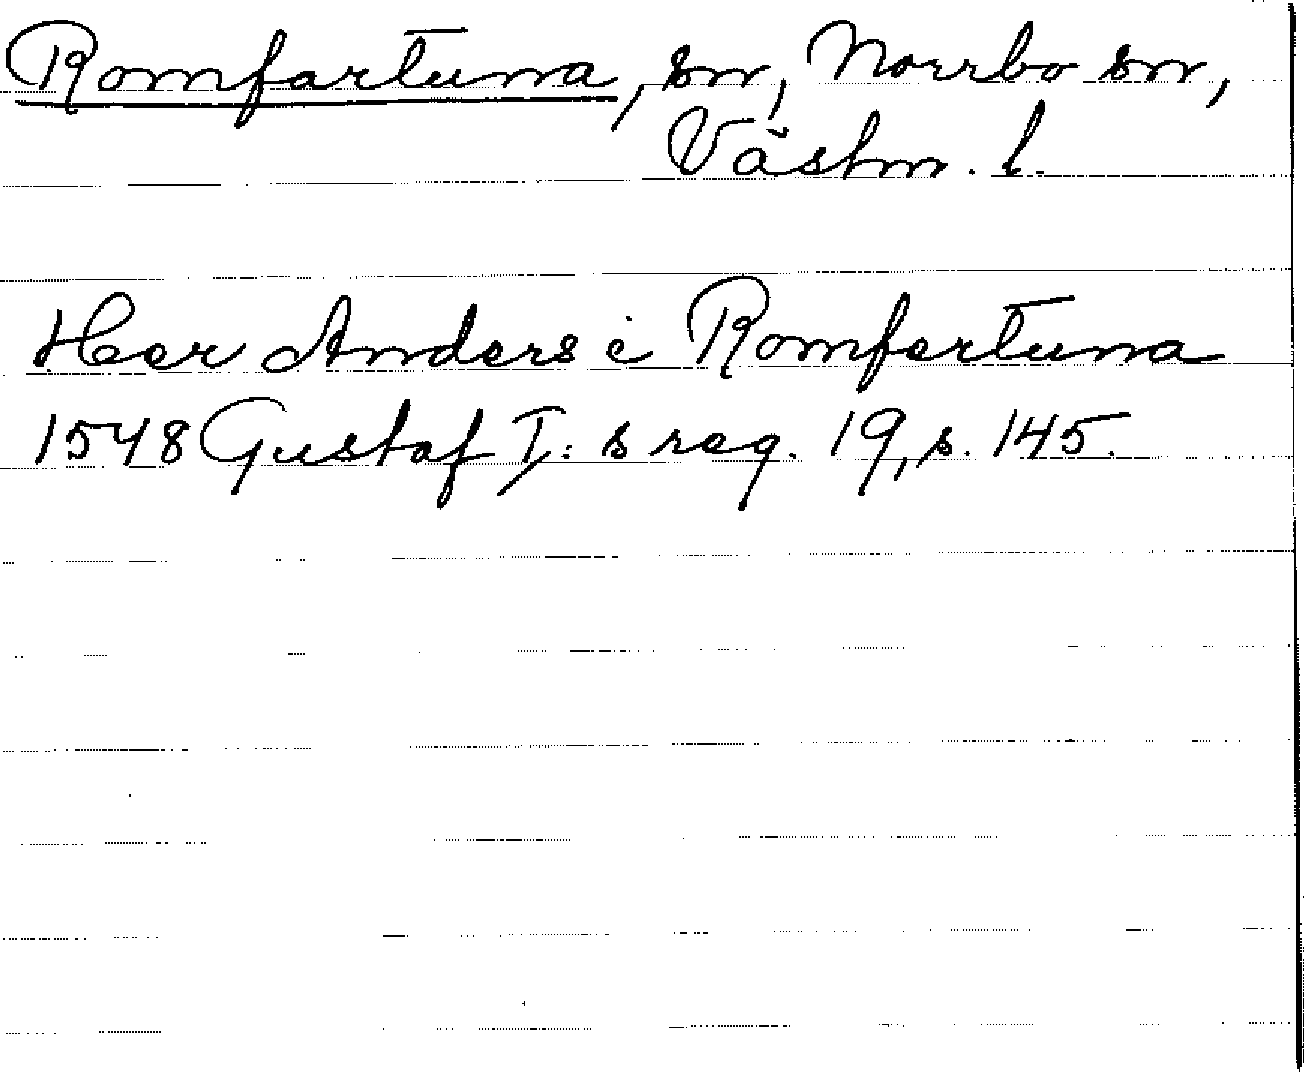 Romfartuna, sn, Norrbo sn,
Västm. l.
Heer Anders i Romfertuna
1548 Gustaf I:s reg. 19, s. 145.